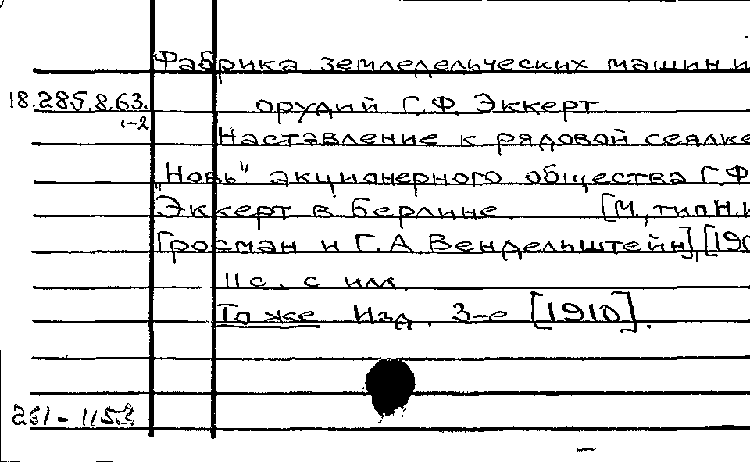 Фабрика земледельческих машин и
18.285.8.63. орудий Г.Ф. Эккерт
1-2
Наставление к рядовой сеялке
"Новь" акционерного общества Г.Ф
Эккерт в Берлине. [М., тип Н.И
Гросман и Г.А Вендельштейн], [190
11 с. с илл.
То же Изд. 3-е [1910].
261-1153